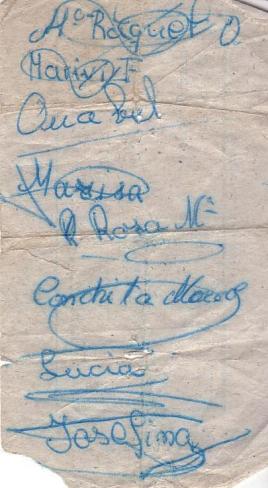 Mª Raquel O.
Marivi F
Ana Bel
Marisa
R Rosa Mª
Conchita
Lucia
Josefina